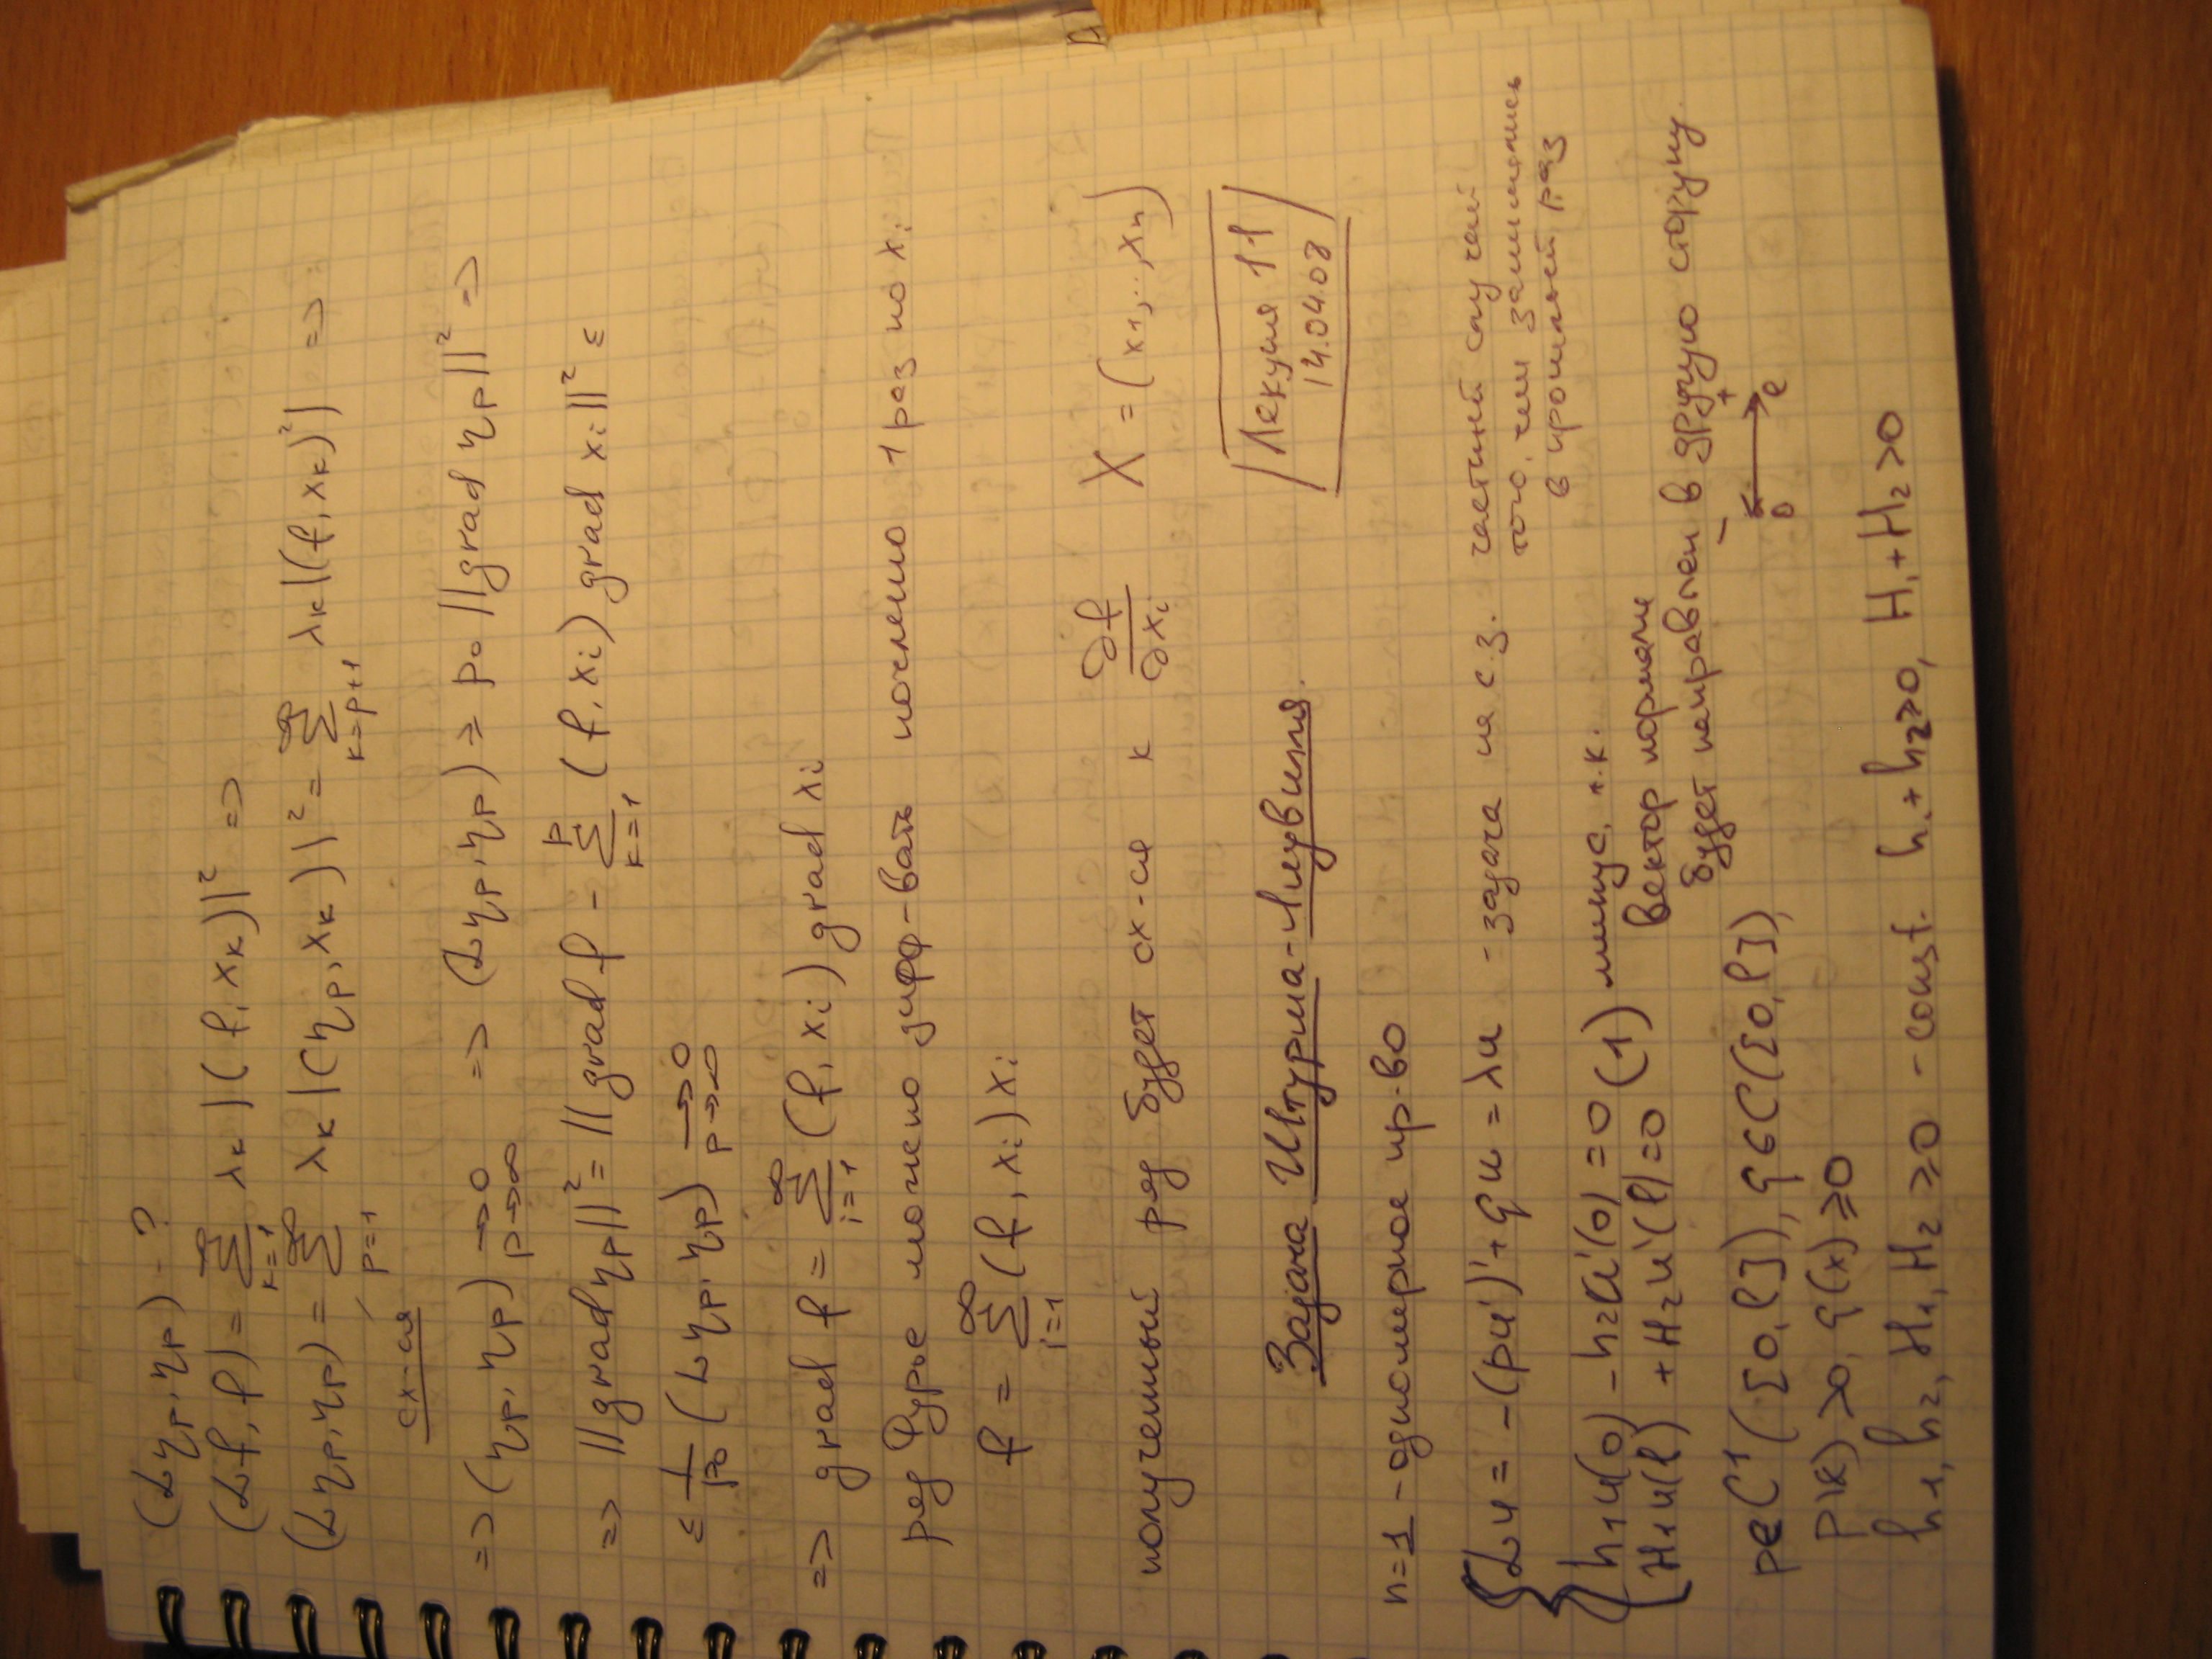 (Lηp, ηp) - ?
(Lf, f) = ∑_{k=1}^{∞} λk |(f, xk)|² =>
(Lηp, ηp) = ∑_{p=1}^{∞} λk |(ηp, xk)|² = ∑_{k=p+1}^{∞} λk |(f, xk)²| =>
сх-ся
=> (ηp, ηp) →0 p→∞ => (Lηp, ηp) ≥ p₀ ||grad ηp||² =>
=> ||grad ηp||² = ||grad f - ∑_{k=1}^{p} (f, xi) grad xi||² ≤
≤ 1/p₀ (Lηp, ηp) →0 p→∞
=> grad f = ∑_{i=1}^{∞} (f, xi) grad xi
ряд Фурье можно дифф-вать почленно 1 раз по xi
f = ∑_{i=1}^{∞} (f, xi) xi
полученный ряд будет сх-ся к ∂f/∂xi X = (x1, ..., xn)
Лекция 11
14.04.08
Задача Штурма-Лиувилля.
n=1 - одномерное пр-во
{ Lu = -(pu')' + qu = λu - задача на с.з. частный случай
того, чем занимались
в прошлый раз
{ h1u(0) - h2u'(0) = 0 (1) минус, т.к.
H1u(l) + H2u'(l) = 0 вектор нормали
будет направлен в другую сторону.
- + 0 l
p∈C¹([0,l]), q∈C([0,l]),
p(x) > 0, q(x) ≥ 0
h1, h2, H1, H2 ≥ 0 - const. h1+h2>0, H1+H2>0